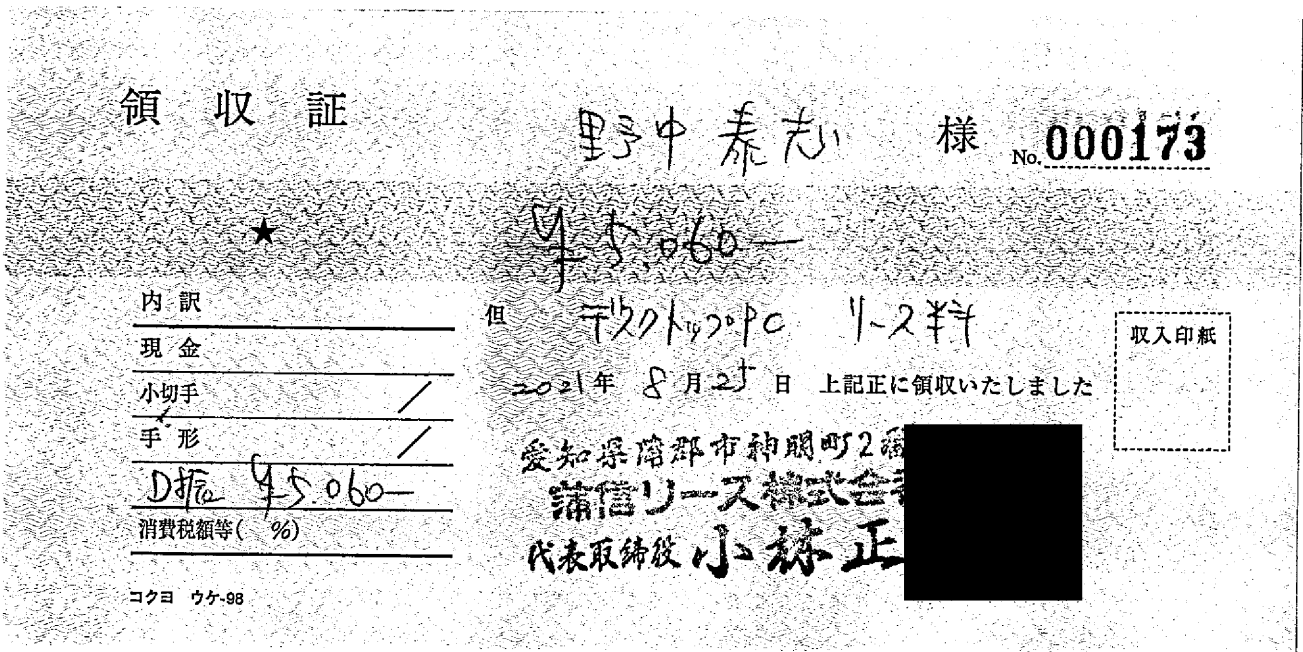 領収証
野中泰志 様 No.000173
★
¥5,060—
内訳
現金
小切手 /
手形 /
D振 ¥5,060—
消費税額等( %)
コクヨ ウケ-98
但 デスクトップPC リース料
2021年 8月25日 上記正に領収いたしました
収入印紙
愛知県蒲郡市神明町2番
蒲信リース株式会社
代表取締役 小林正